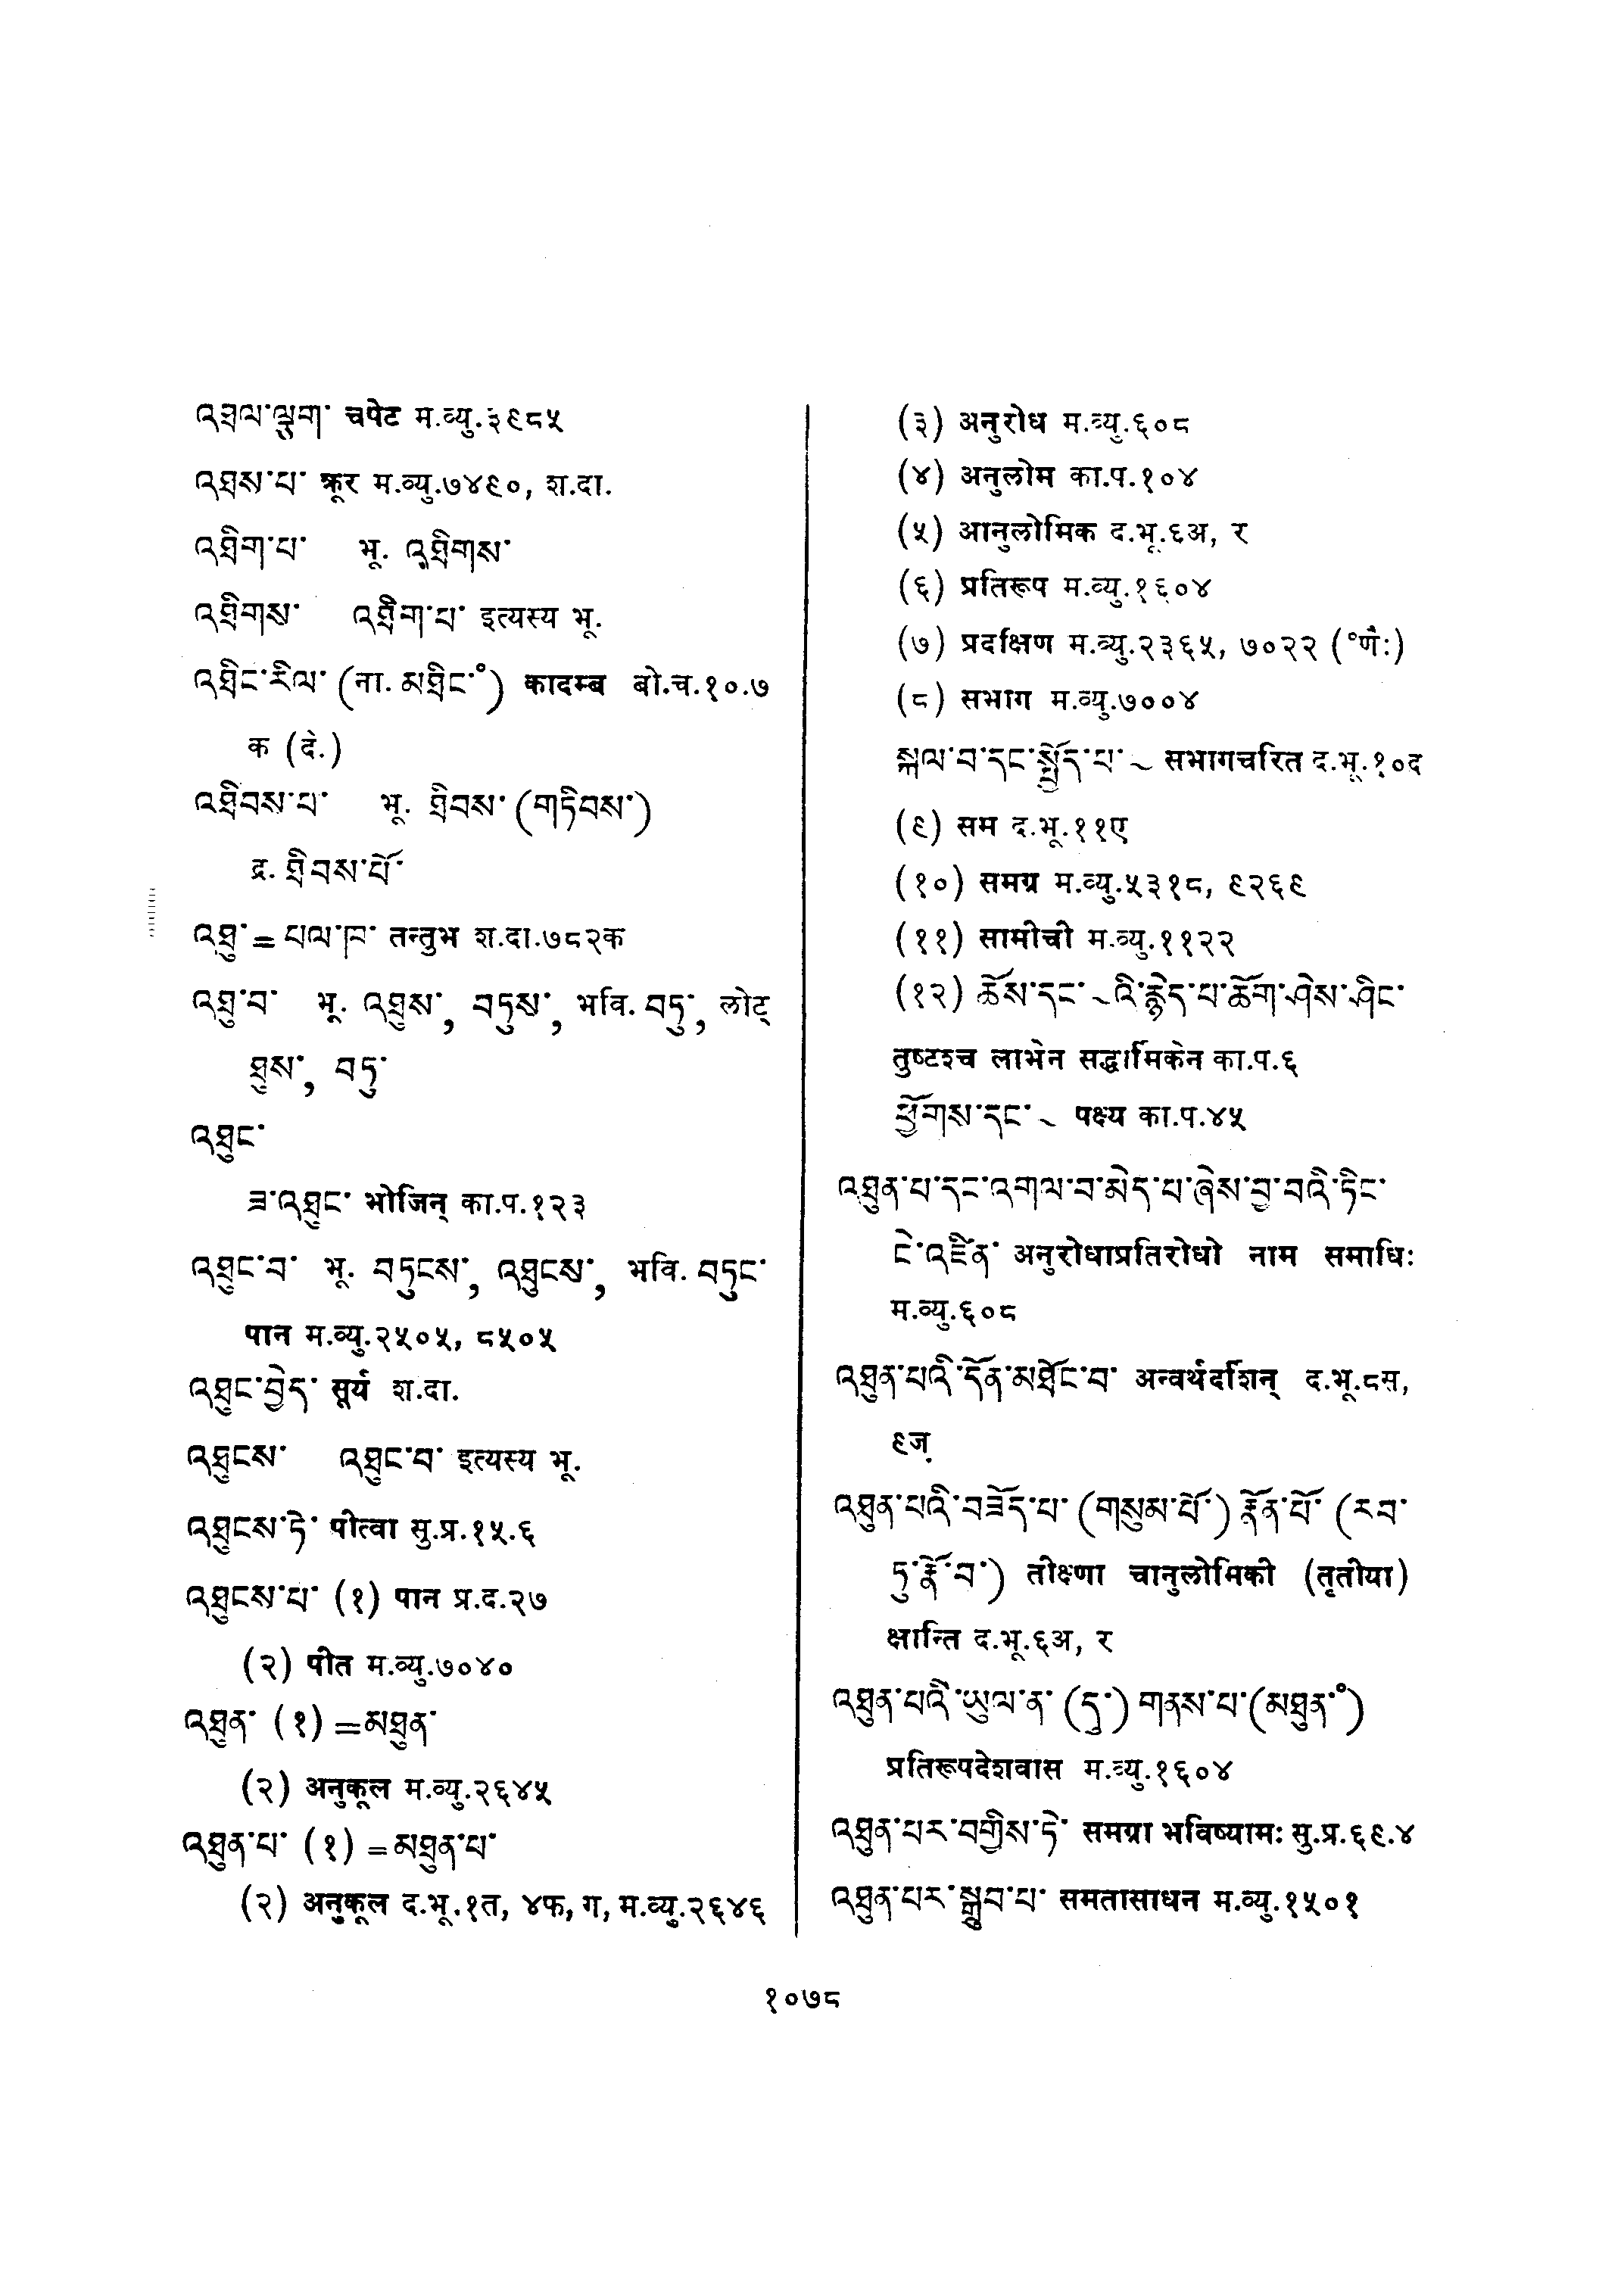 འཐལ་ལྕག་ चपेट म.व्यु.३९८५
འཐས་པ་ क्रूर म.व्यु.७४९०, श.दा.
འཐིག་པ་ भू. འཐིགས་
འཐིགས་ འཐིག་པ་ इत्यस्य भू.
འཐིང་རིལ་ (ना. མཐིང་°) कादम्ब बो.च.१०.७
क (दे.)
འཐིབས་པ་ भू. ཐིབས་ (གཏིབས་)
द्र. ཐིབས་པོ་
འཐུ་ = པལ་ཁ་ तन्तुभ श.दा.७८२क
འཐུ་བ་ भू. འཐུས་, བཏུས་, भवि. བཏུ་, लोट्
ཐུས་, བཏུ་
འཐུང་
ཟ་འཐུང་ भोजिन् का.प.१२३
འཐུང་བ་ भू. བཏུངས་, འཐུངས་, भवि. བཏུང་
पान म.व्यु.२५०५, ८५०५
འཐུང་བྱེད་ सूर्य श.दा.
འཐུངས་ འཐུང་བ་ इत्यस्य भू.
འཐུངས་ཏེ་ पीत्वा सु.प्र.१५.६
འཐུངས་པ་ (१) पान प्र.द.२७
(२) पीत म.व्यु.७०४०
འཐུན་ (१) = མཐུན་
(२) अनुकूल म.व्यु.२६४५
འཐུན་པ་ (१) = མཐུན་པ་
(२) अनुकूल द.भू.१त, ४फ, ग, म.व्यु.२६४६
(३) अनुरोध म.व्यु.६०८
(४) अनुलोम का.प.१०४
(५) आनुलोमिक द.भू.६अ, र
(६) प्रतिरूप म.व्यु.१६०४
(७) प्रदक्षिण म.व्यु.२३६५, ७०२२ (°र्णः)
(८) सभाग म.व्यु.७००४
སྐལ་བ་དང་སྤྱོད་པ་ ~ सभागचरित द.भू.१०द
(९) सम द.भू.११ए
(१०) समग्र म.व्यु.५३१८, ९२६९
(११) सामीची म.व्यु.११२२
(१२) ཆོས་དང་ ~ འི་རྙེད་པ་ཆོག་ཤེས་ཤིང་
तुष्टश्च लाभेन सद्धार्मिकेन का.प.६
ཕྱོགས་དང་ ~ पक्ष्य का.प.४५
འཐུན་པ་དང་འགལ་བ་མེད་པ་ཞེས་བྱ་བའི་ཏིང་
ངེ་འཛིན་ अनुरोधाप्रतिरोधो नाम समाधिः
म.व्यु.६०८
འཐུན་པའི་དོན་མཐོང་བ་ अन्वर्थदर्शिन् द.भू.८स,
९ज
འཐུན་པའི་བཟོད་པ་ (གསུམ་པོ་) རྣོན་པོ་ (རབ་
ཏུ་རྣོ་བ་) तीक्ष्णा चानुलोमिकी (तृतीया)
क्षान्ति द.भू.६अ, र
འཐུན་པའི་ཡུལ་ན་ (དུ་) གནས་པ་ (མཐུན་°)
प्रतिरूपदेशवास म.व्यु.१६०४
འཐུན་པར་བགྱིས་ཏེ་ समग्रा भविष्यामः सु.प्र.६९.४
འཐུན་པར་སྒྲུབ་པ་ समतासाधन म.व्यु.१५०१
१०७८